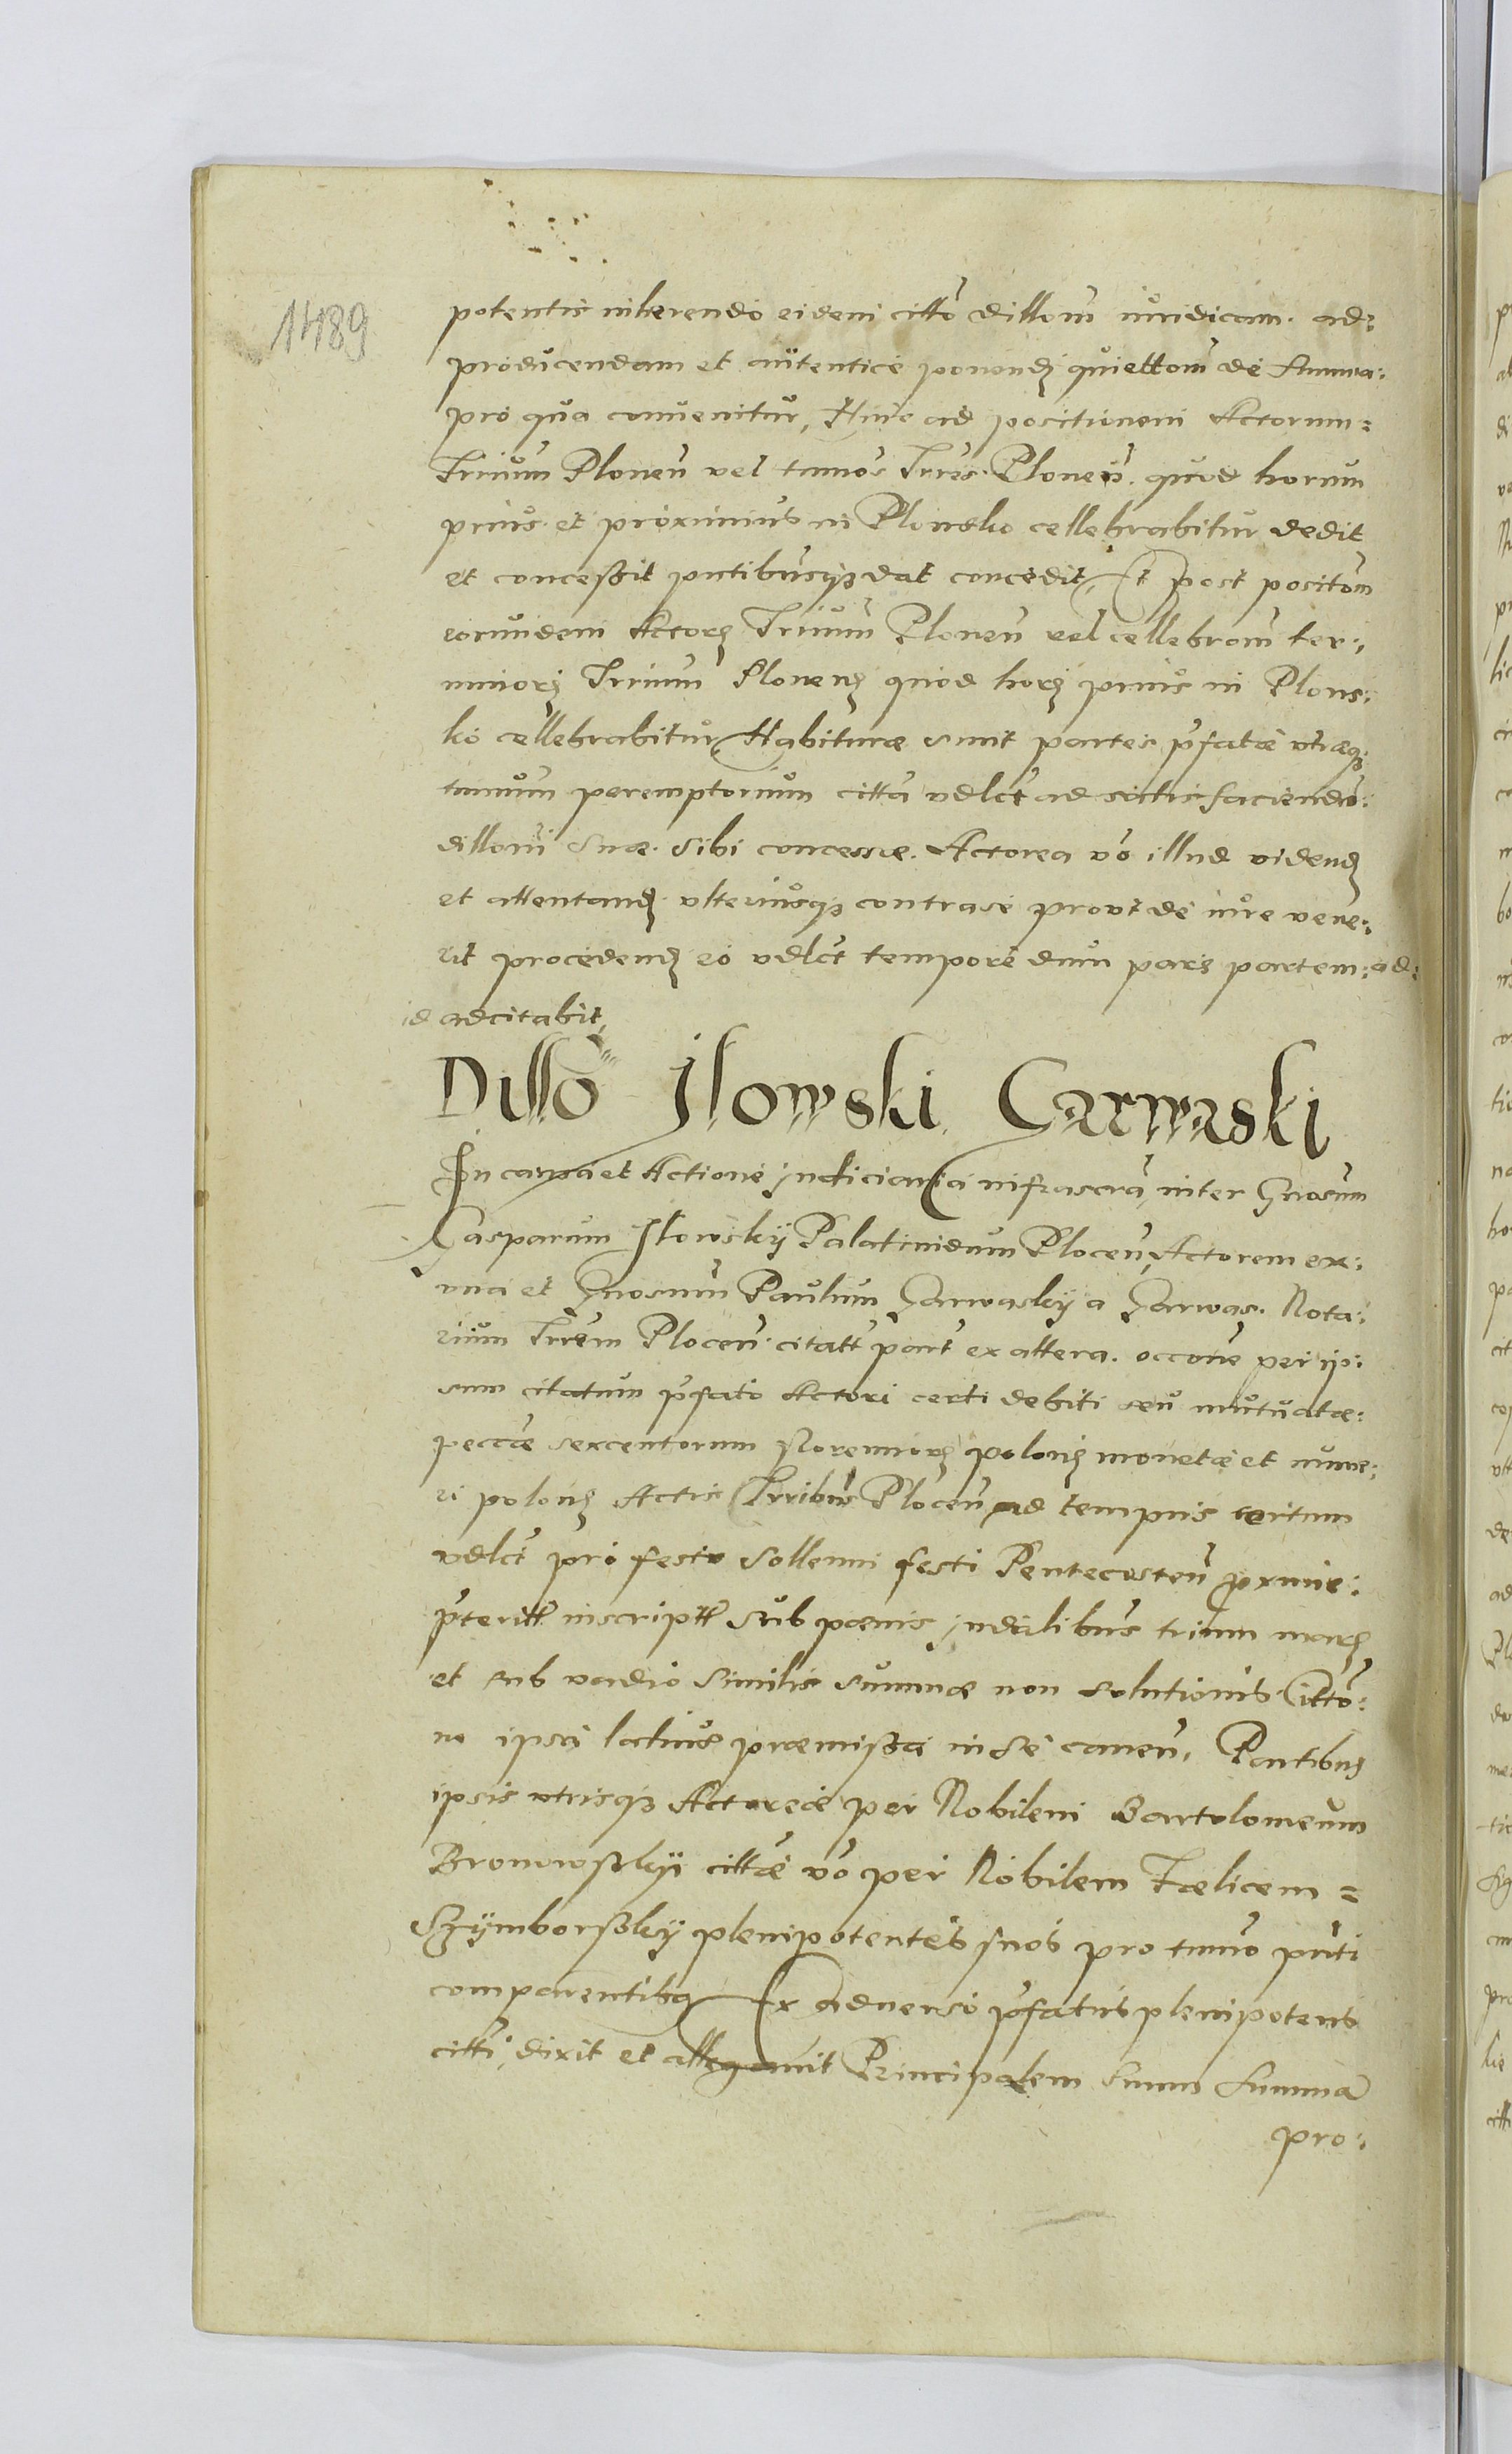 1489
potentis inherendo eidem citto dillom iuridicam. ad:
producendam et autentice ponend quiettom de summa:
pro qua convenitur, Hinc ad positionem Actorum =
Trium Plonen vel tmos Trres Plonen. quod horum
prius et proximius in Plonsko cellebrabitur dedit
et concessit pntibusq dat concedit, Et post positom
eorundem Actor Trium Plonen vel cellebrom ter:,
minor Trrium Plonen quod hor prius in Plons:
ko cellebrabitur, Habituræ sunt partes pfatæ vtræq
tmum peremptorium citta vdlct ad satisfaciendu:
dillom suæ sibi concessæ. Actorea vo illud vidend
et attentand vlteriusq contrase prout de iure vene:
rit procedend eo vdlct tempore dum pars partem: ad:
id adcitabit,
Dillo Ilowski Garwaski
In causa et Actione judiciaria infrascra, inter Gnosum
Gasparum Ilowskÿ Palatinidum Plocen, Actorem ex:
vna et Gnosum Paulum Garwaskÿ a Garwas. Nota:
rium Trrem Plocen. citatt part ex altera. occone per ip:
sum citatum pfato Actori certi debiti seu mutuatæ:
peccæ sexcentorum florenor polon monetæ et nume:
ri polon Actis Trribus Plocen ad tempus certum
vdlct pro festo sollemni festi Pentecosten pxime:
pteritt inscriptt sub pænis judialibus trium march
et sub vadio similis summæ non solutionis. Citto:
ne ipsa latius præmissa in se canen, Partibus
ipsis vtrisq Actoreæ per Nobilem Bartolomeum
Bronowskÿ cittæ vo per Nobilem Fælicem =
Szÿmborskÿ plenipotentes suos pro tmno pnti
comparentibq Ex adverso pfatus plenipotens
citti, dixit et allegavit Principalem suum summa
pro: